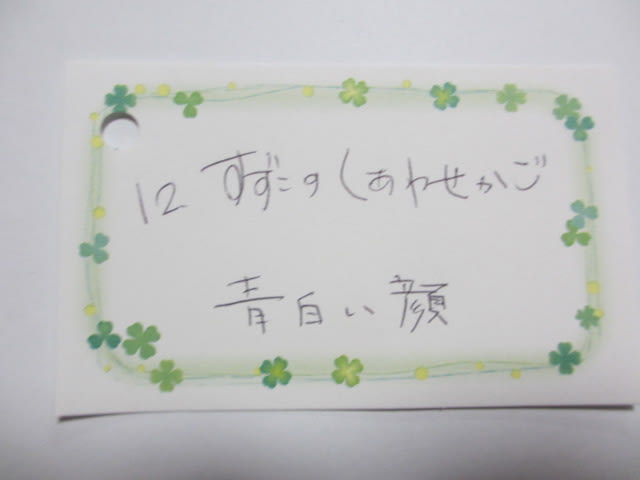 12 すずこのしあわせかご
青白い顔